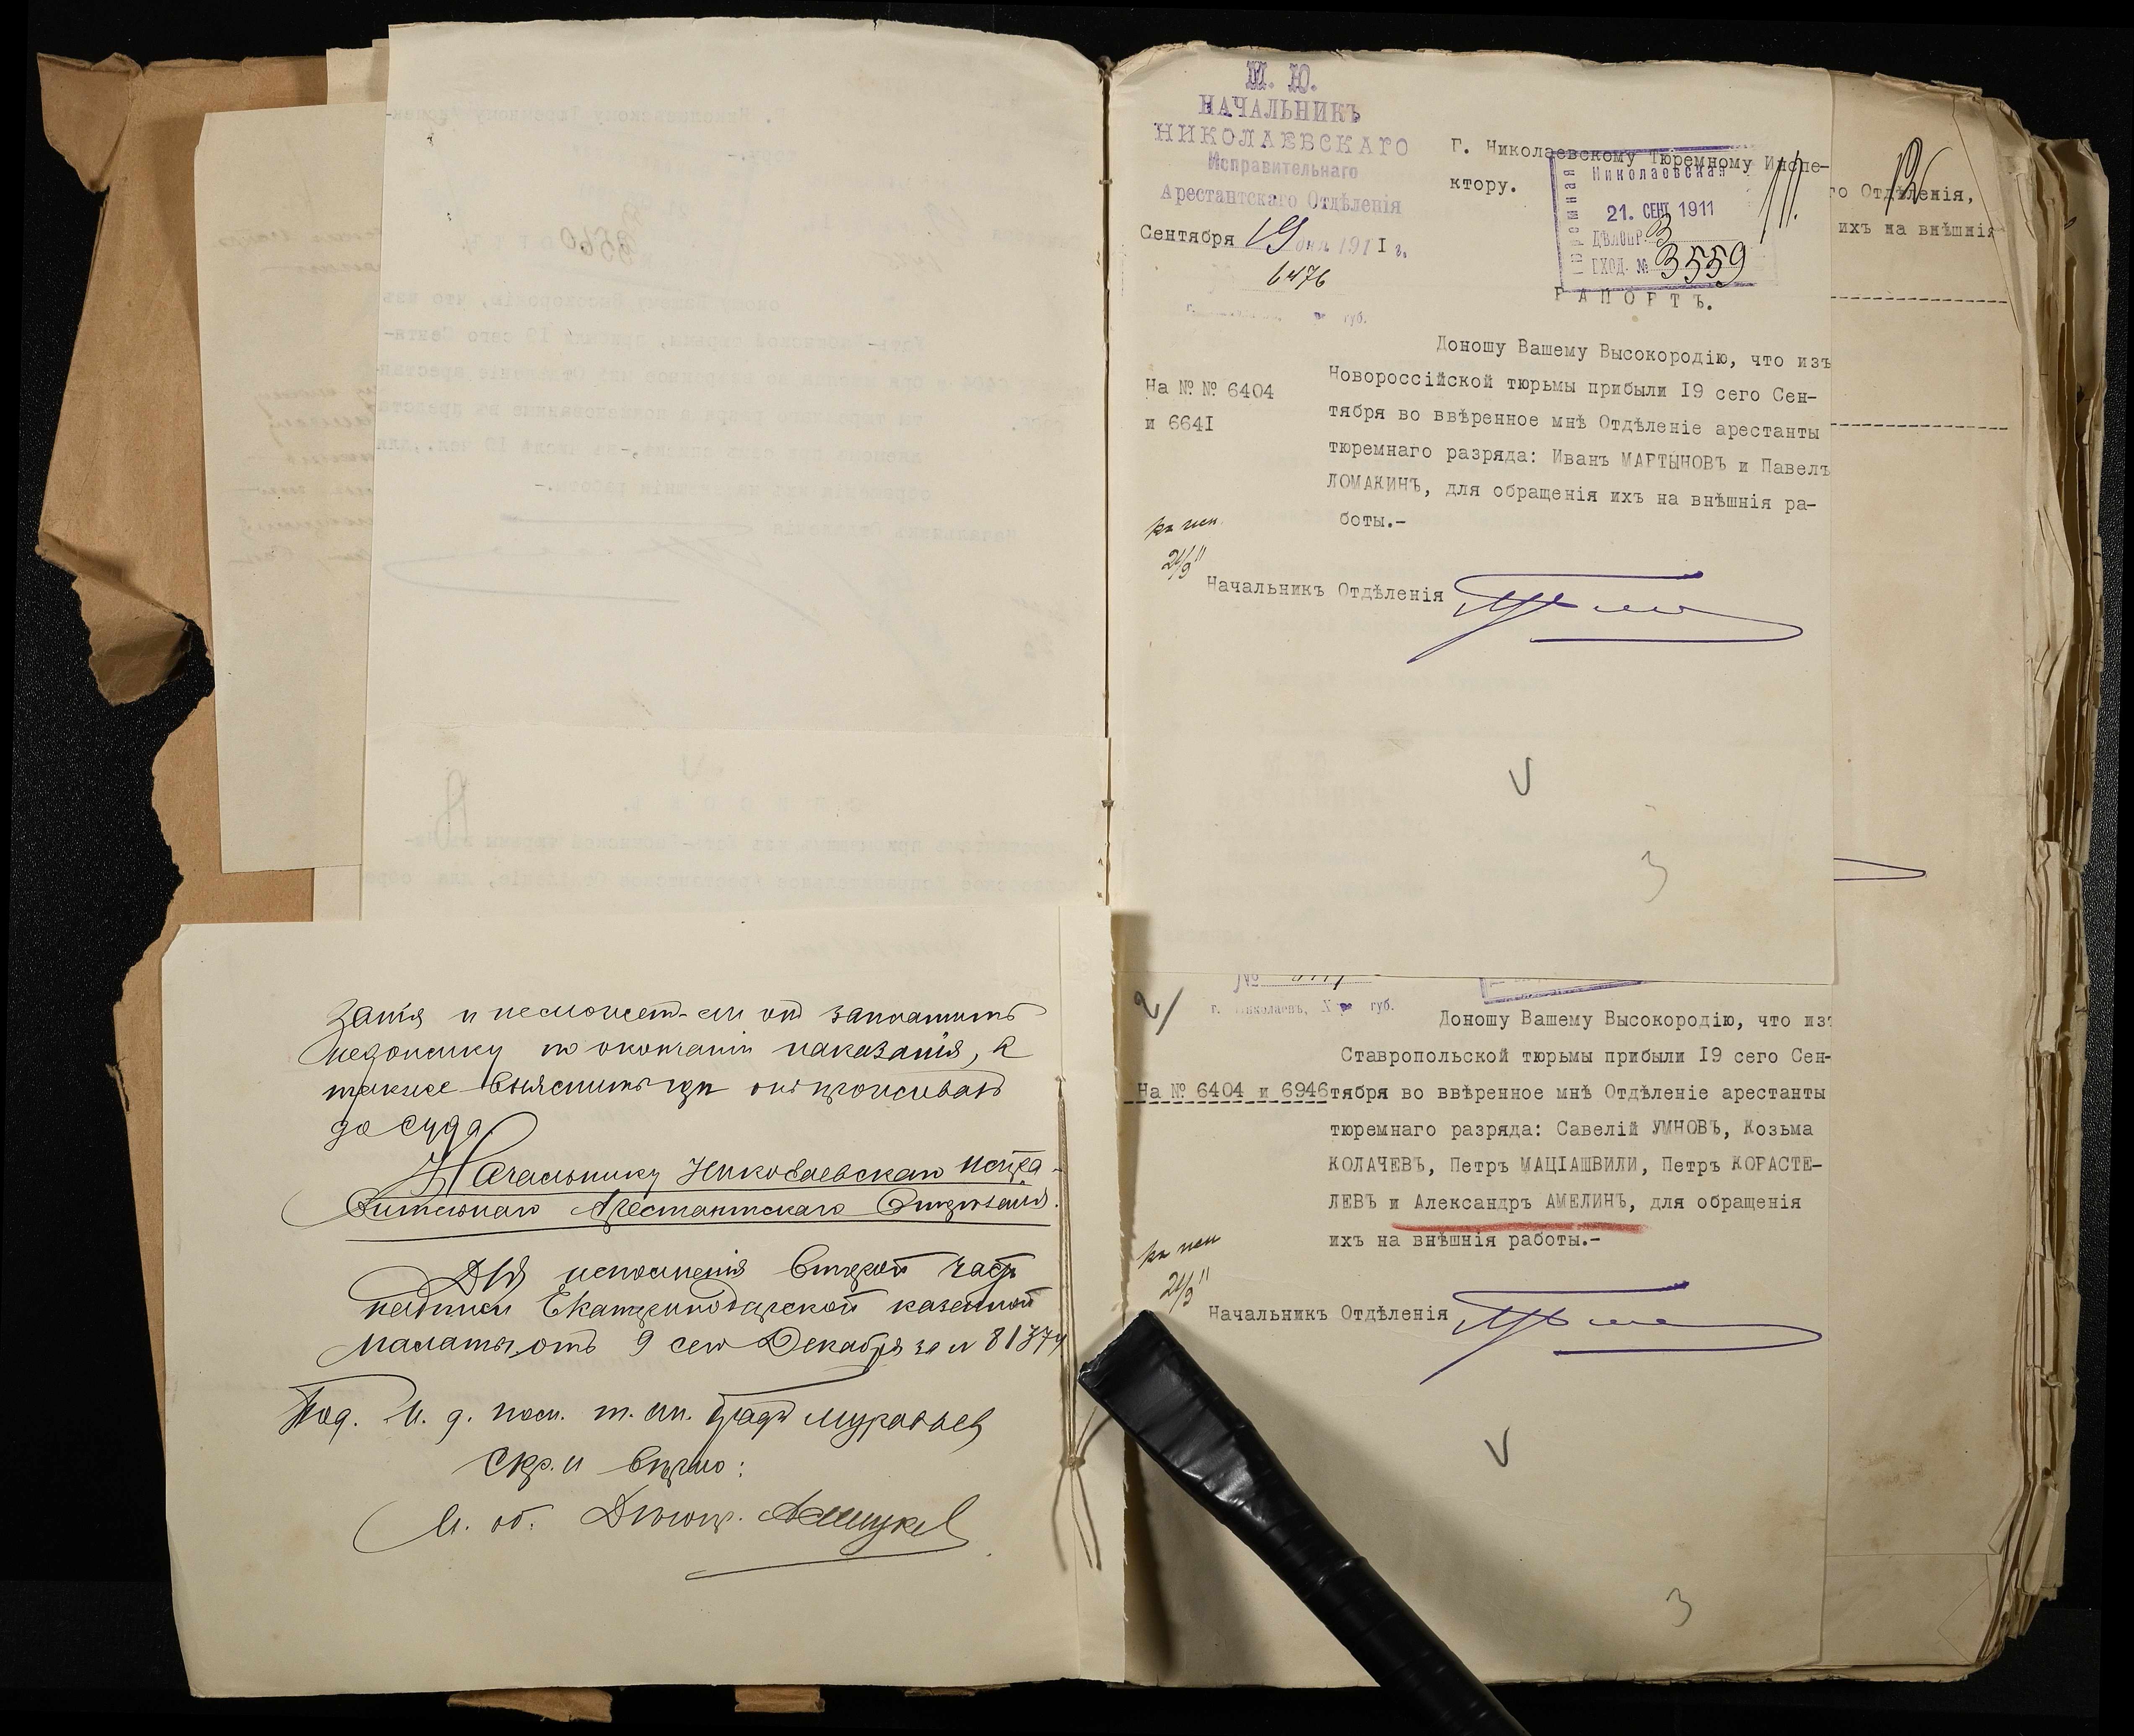 занія и несможетъ-ли онъ заплатить
недоимку по окончаніи наказанія, а
также выяснить гдѣ онъ проживалъ
до суда.
Начальнику Николаевскаго Испра-
вительнаго Арестантскаго Отдѣленія.
Для исполненія второй части
надписи Екатеринодарской казенной
Палаты отъ 9 сего Декабря за № 81374
Под. И. д. пом. т. ин. Графъ Муравьев
Скр. и вѣрно:
И. об. Дѣлопр.
М. Ю.
НАЧАЛЬНИКЪ
НИКОЛАЕВСКАГО
Исправительнаго
Арестантскаго Отдѣленія
Сентября 19 дня 1911 г.
6476
губ.
Г. Николаевскому Тюремному Инспе-
ктору.
Николаевская
21. СЕНТ 1911
ДѢЛОПР. 3
ВХОД. № 3559
РАПОРТЪ.
Доношу Вашему Высокородію, что изъ
Новороссійской тюрьмы прибыли I9 сего Сен-
тября во ввѣренное мнѣ Отдѣленіе арестанты
тюремнаго разряда: Иванъ МАРТЫНОВЪ и Павелъ
ЛОМАКИНЪ, для обращенія ихъ на внѣшнія ра-
боты.-
На № № 6404
и 664I
21/9 11
Начальникъ Отдѣленія
3
го Отдѣленія,
ихъ на внѣшнія
2/
№
г. Николаевъ, Х губ.
Доношу Вашему Высокородію, что изъ
Ставропольской тюрьмы прибыли I9 сего Сен-
На № 6404 и 6946 тября во ввѣренное мнѣ Отдѣленіе арестанты
тюремнаго разряда: Савелій УМНОВЪ, Козьма
КОЛАЧЕВЪ, Петръ МАЦІАШВИЛИ, Петръ КОРАСТЕ-
ЛЕВЪ и Александръ АМЕЛИНЪ, для обращенія
ихъ на внѣшнія работы.-
21/9 11
Начальникъ Отдѣленія
3